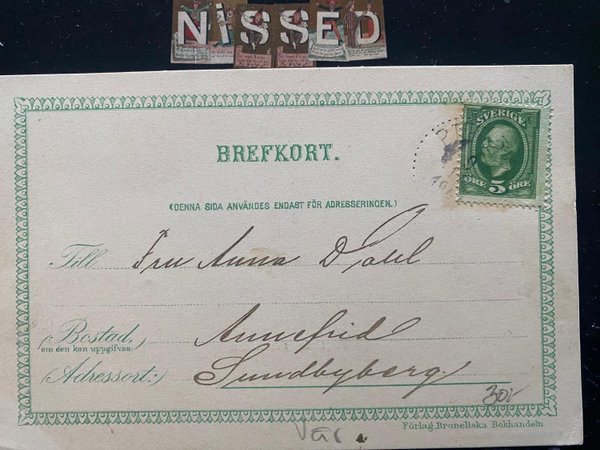 NiSSED
BREFKORT.
SVERIGE
ÖRE 5 ÖRE
(DENNA SIDA ANVÄNDES ENDAST FÖR ADRESSERINGEN.)
Till Fru Anna Dahl
Bostad, Annefrid
(om den kan uppgifvas)
(Adressort:) Sundbyberg
30:-
Vår.
Förlag, Bronellska Bokhandeln.